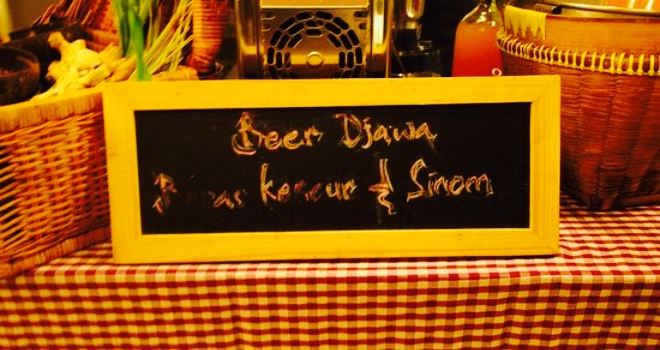 Beer Djawa
Beras kencur & Sinom